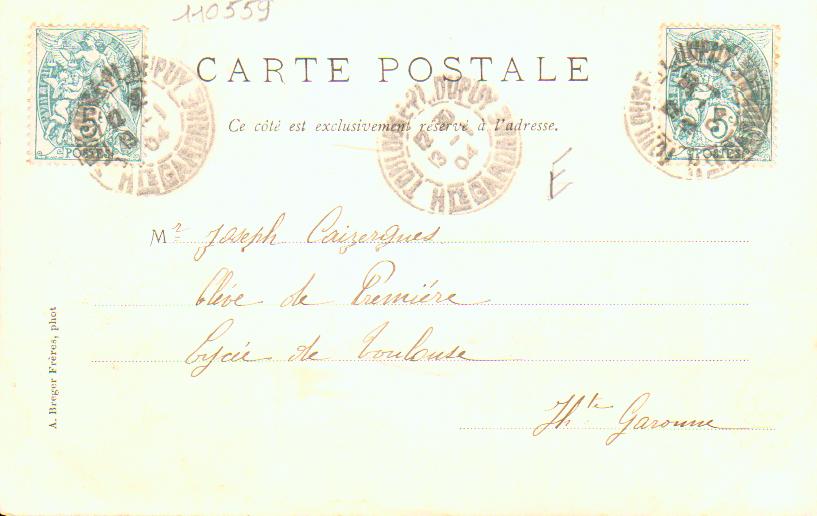 110559
CARTE POSTALE
Ce côté est exclusivement réservé à l'adresse.
5
POSTES
5
POSTES
TOULOUSE
DUPUY
Hte GARONNE
12
13 -1
04
E
Mr Joseph Caizergues
Elève de Première
Lycée de Toulouse
Hte Garonne
A. Breger Frères, phot